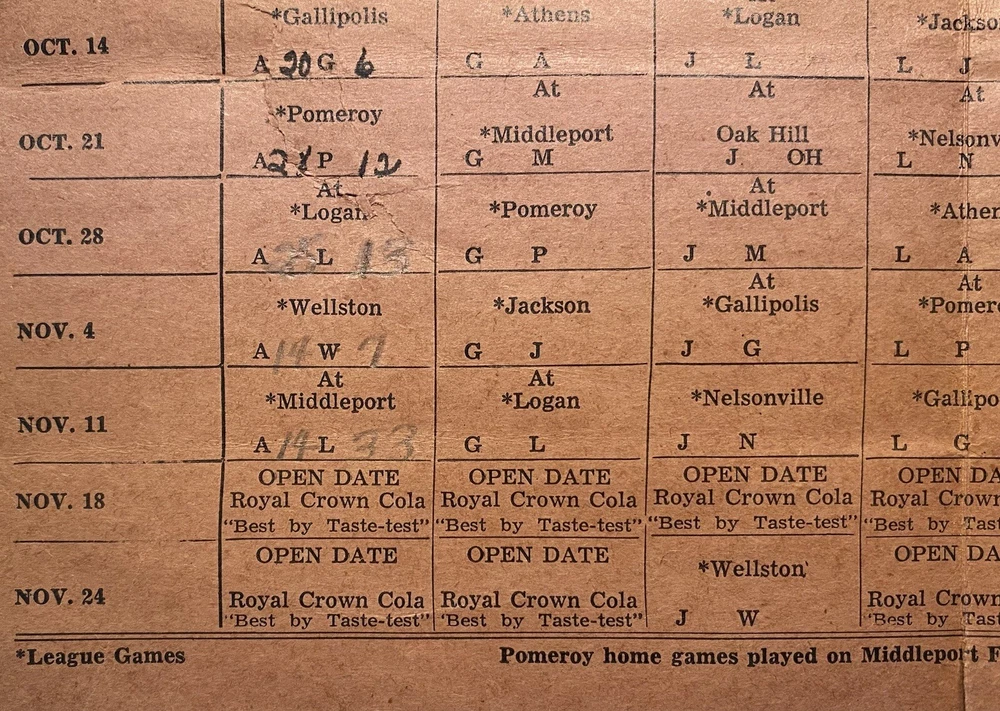 *Gallipolis *Athens *Logan
OCT. 14
A 20 G 6 G A J L L J
At At At
*Pomeroy
OCT. 21 *Middleport Oak Hill
A P 12 G M J OH L N
At At
*Logan *Pomeroy *Middleport
OCT. 28
A L 13 G P J M L A
At At
*Wellston *Jackson *Gallipolis
NOV. 4
A 14 W 7 G J J G L P
At At
*Middleport *Logan *Nelsonville
NOV. 11
A 14 L 33 G L J N L G
OPEN DATE OPEN DATE OPEN DATE
NOV. 18 Royal Crown Cola Royal Crown Cola Royal Crown Cola Royal Crown
"Best by Taste-test" "Best by Taste-test" "Best by Taste-test" "Best by
OPEN DATE OPEN DATE OPEN
*Wellston
NOV. 24 Royal Crown Cola Royal Crown Cola Royal Crown
"Best by Taste-test" "Best by Taste-test" J W "Best by
*League Games Pomeroy home games played on Middleport F